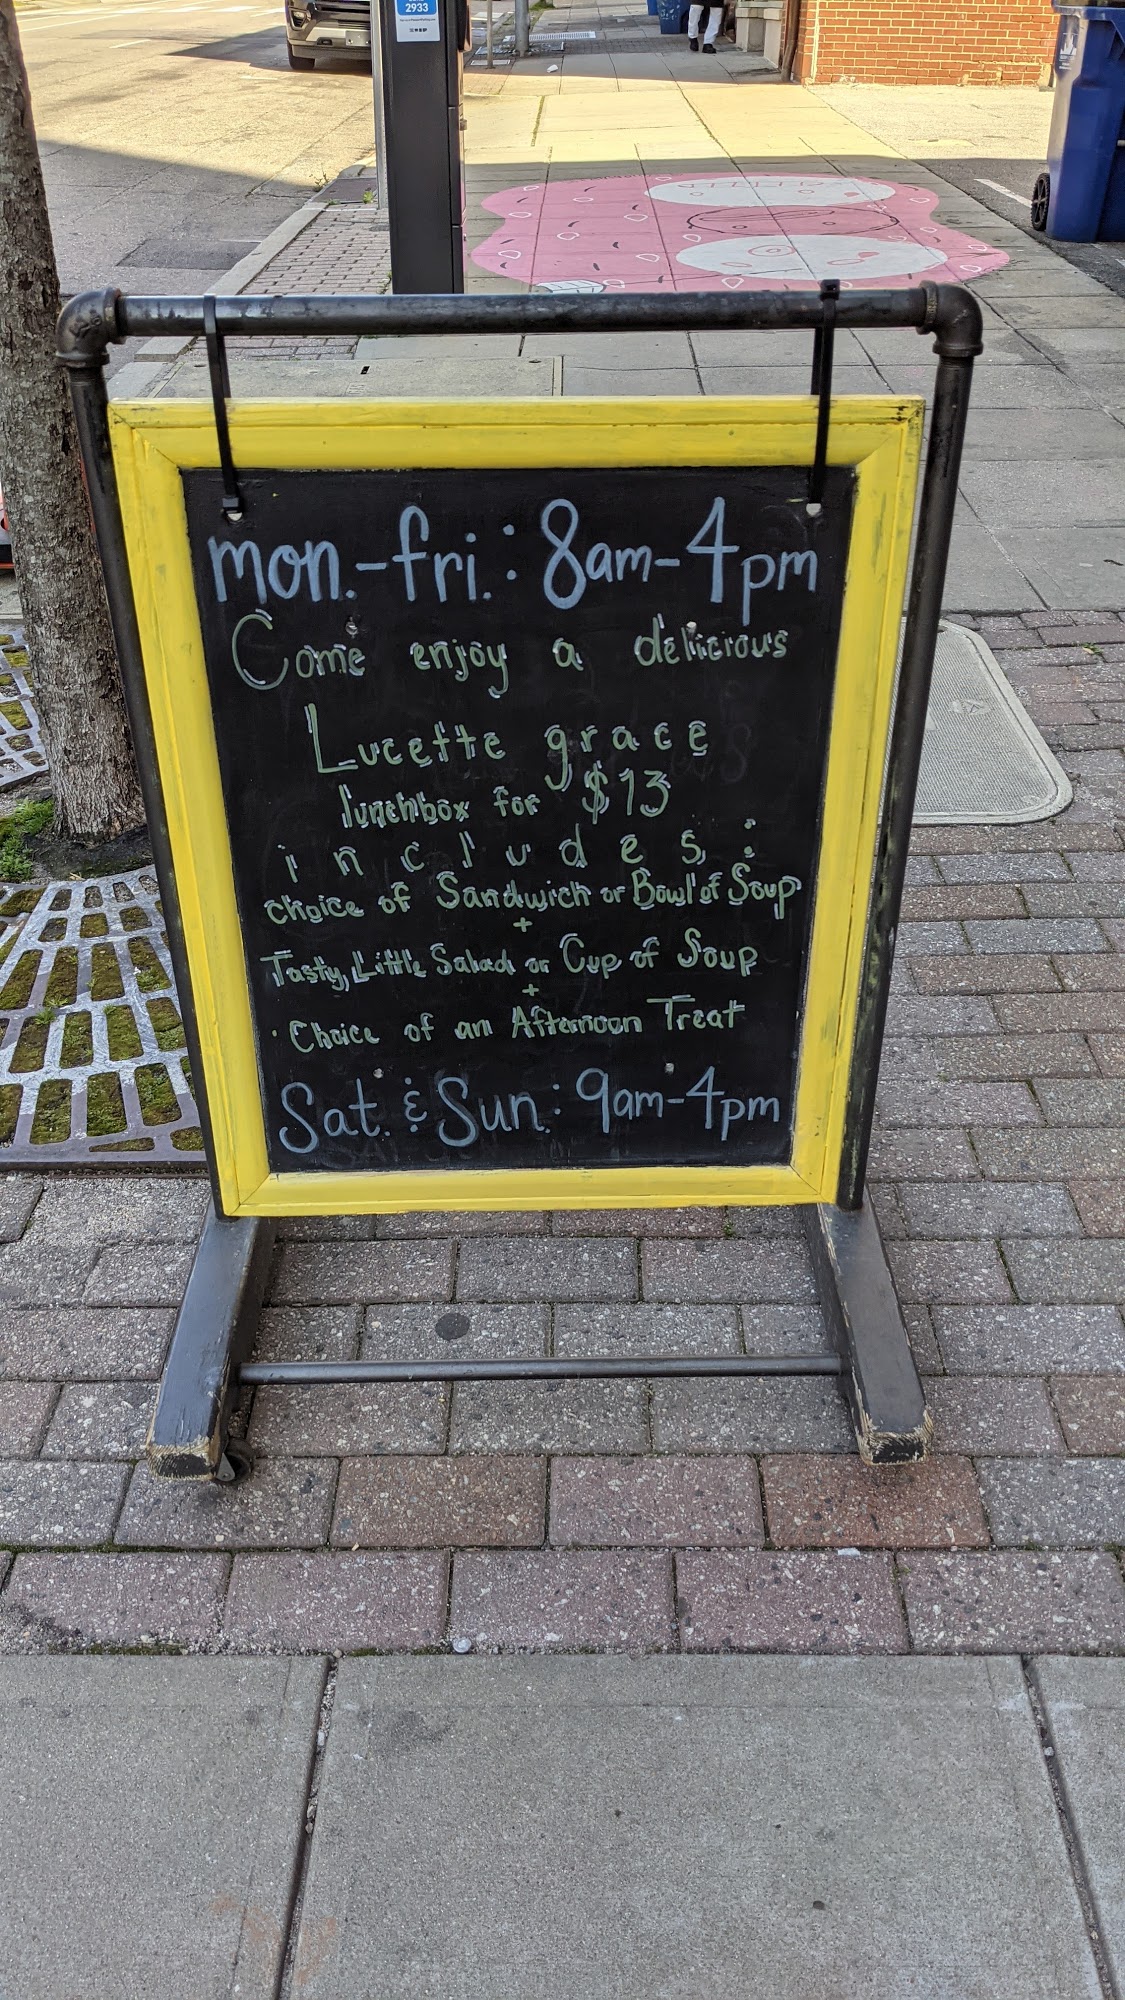 2933
mon.-fri.: 8am-4pm
Come enjoy a delicious
Lucette grace
lunchbox for $13
includes:
choice of Sandwich or Bowl of Soup
+
Tasty, Little Salad or Cup of Soup
+
· Choice of an Afternoon Treat
Sat. & Sun.: 9am-4pm